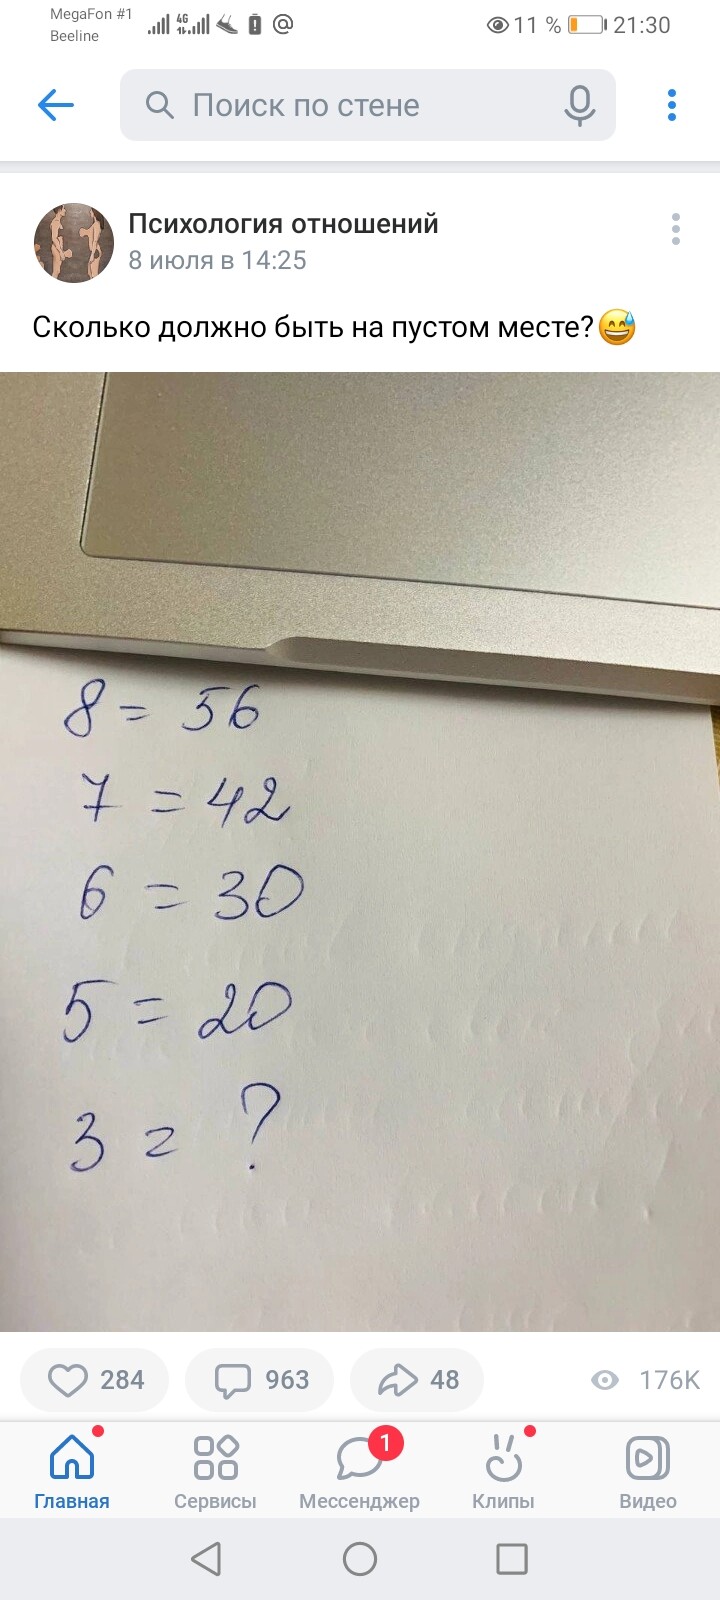 MegaFon #1
Beeline
4G
11 %
21:30
Поиск по стене
Психология отношений
8 июля в 14:25
Сколько должно быть на пустом месте?😅
8 = 56
7 = 42
6 = 30
5 = 20
3 = ?
284
963
48
176K
1
Главная
Сервисы
Мессенджер
Клипы
Видео